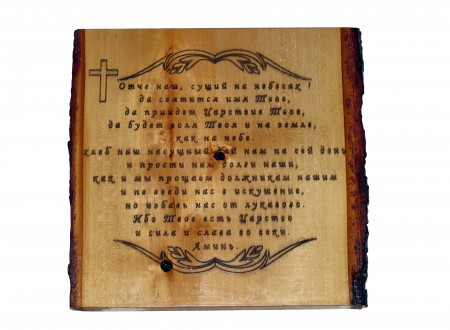 Отче наш, сущий на небесах !
да святится имя Твое,
да приидет Царствие Твое,
да будет воля Твоя и на земле,
как на небе.
хлеб наш насущный дай нам на сей день
и прости нам долги наши,
как и мы прощаем должникам нашим
и не введи нас в искушение,
но избавь нас от лукавого.
Ибо Твое есть Царство
и сила и слава во веки.
Аминь.